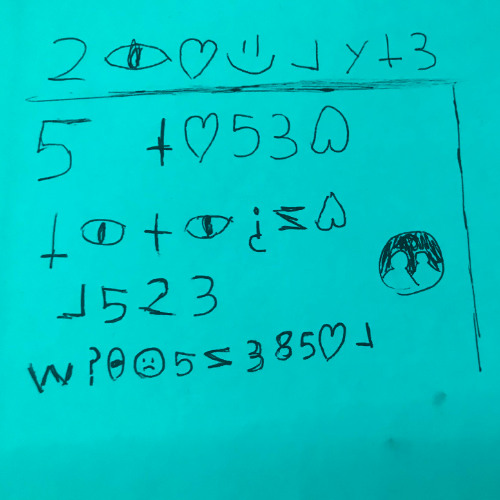 2 👁 ♡ ツ ⅃ y t 3
5 t ♡ 5 3 ♤
t 👁 t 👁 ¿ Σ ♤
⅃ 5 2 3
w ? θ ☹ 5 ≤ 3 8 5 ♡ ⅃